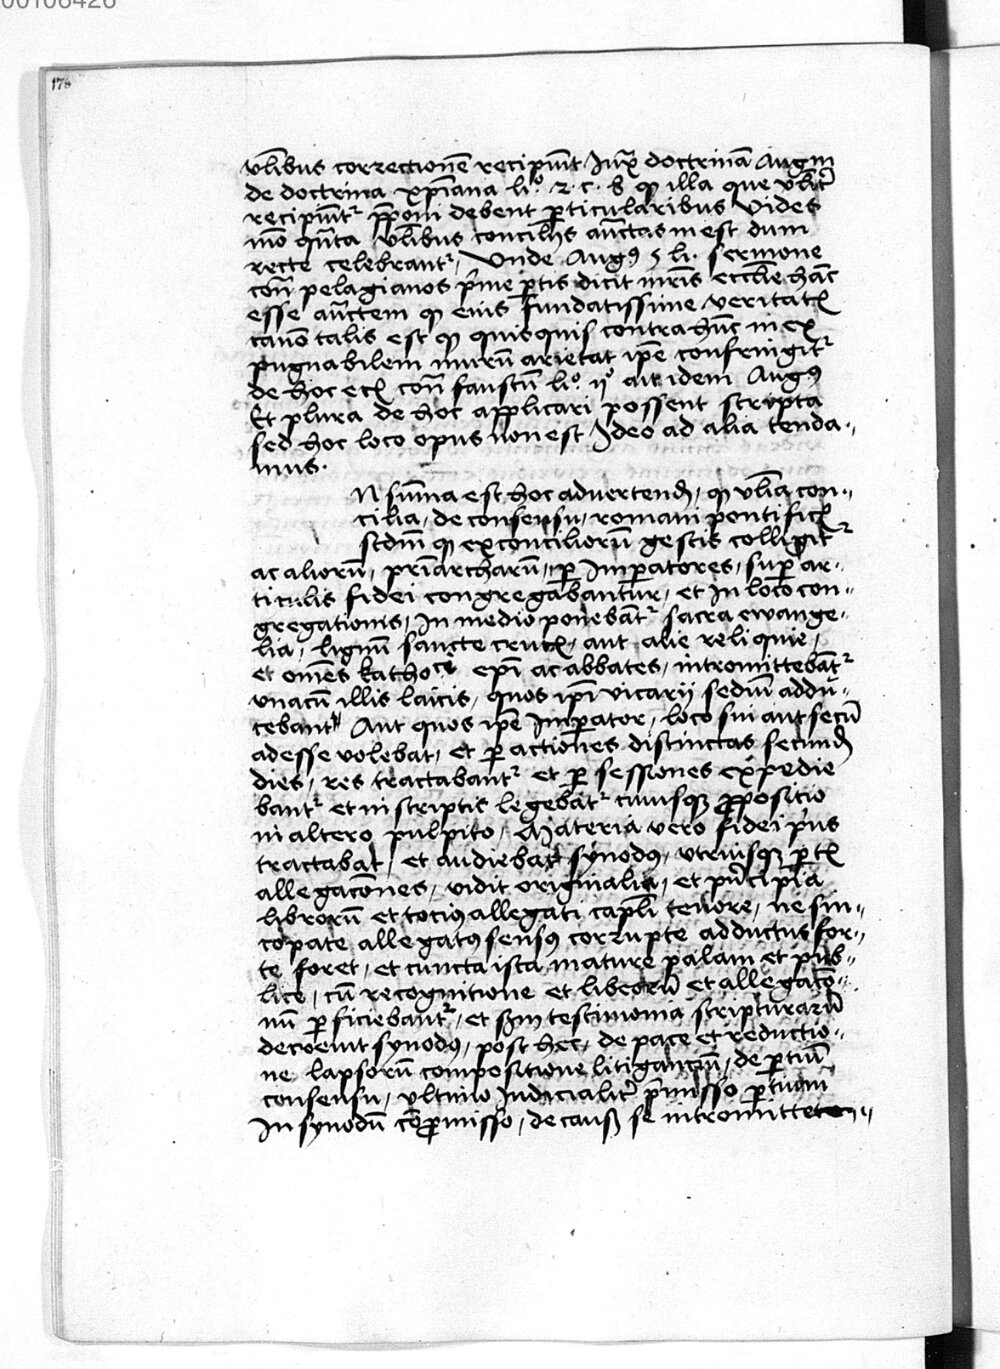 00106426
176
vlibus correctionē recipiūt Iuxᵃ doctrinā Augm
de doctrina xp̄iana li° 2 c. 8 qꝫ illa que vlit̄
recipiūtʳ p̄poni debent ꝑticularibus Vides
mō quāta vlibus concilijs auctas inest dum
recte celebrantʳ, Vnde Augꝰ 5 li. sermone
cōn̄ pelagianos prīme ꝑtis dicit nr̄is eccl̄ie hāc
esse auctem qꝫ eius fundatissime veritatꝭ
cano talis est qꝫ quisquis contra hūc inex
pugnabilem murū arietat ip̄e confringitʳ
de hoc etꝭ cōn̄ faustū li° ij° ait idem Augꝰ
Et plura de hoc applicari possent scripta
sed hoc loco opus non est Ideo ad alia tenda..
mus.
N sūma est hoc aduertend̄, qꝫ vlia con..
cilia, de consensu, romani pontificꝭ
scdm̄ qꝫ ex conciliorū gestis colligitʳ
ac aliorū, priārcharū, ꝑ Imꝑatores, suꝑ ar..
ticulis fidei congregabantur, et In loco con..
gregationis, In medio ponebātʳ sacra ewange..
lia, lignū sancte crucꝭ, aut alie reliquie,
et om̄es kathoci ep̄i ac abbates, intromittebātʳ
vnacū illis laicis, quos ip̄i vicarij sediū addu..
cebantʳ Aut quos ip̄e Imꝑator, loco sui aut secū
adesse volebat, et ꝑ actiones distinctas secund̄
dies, res tractabantʳ et ꝑ sessiones expedie
bantʳ et in scriptis legebatʳ cuiusqꝫ ꝓpositio
in altero pulpito, Materia vero fidei prīus
tractabat, et audiebat synodꝰ, vtriusqꝫ ꝑtꝭ
allegacōnes, vidit originalia, et prīncipia
librorū et totiꝰ allegati capl̄i tenore, ne sin..
copate allegatꝰ sensꝰ corrupte adductus for..
te foret, et cuncta ista mature palam et pub..
lice, cū recognitione et librorū et allegacō..
nū ꝑficiebantʳ, et scdm testimonia scripturarū
decreuit synodꝰ, post hec, de pace et reductio..
ne lapsorū compositione litiganciū, de ꝑtiū
consensu, vltimo Iudicialit̄ prīmisso ꝑtium
In synodū cōꝓmisso, de causꝭ se intromitteten..